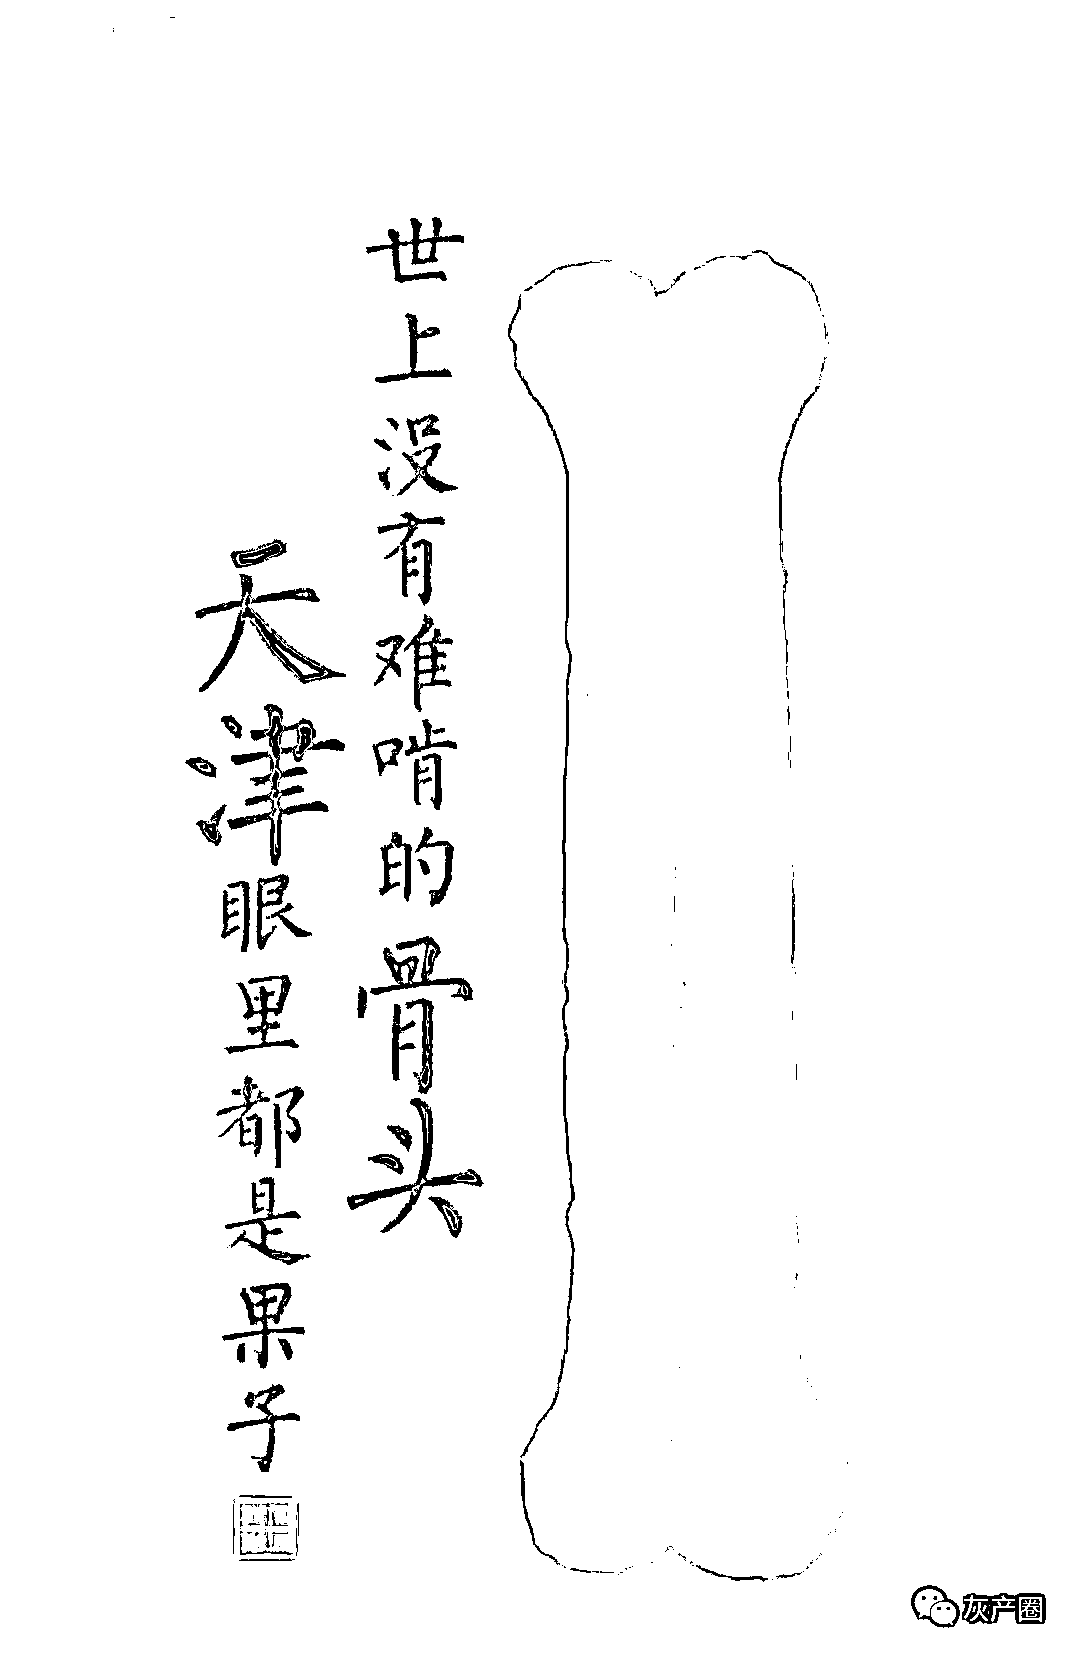 世上没有难啃的骨头
天津眼里都是果子
灰产圈